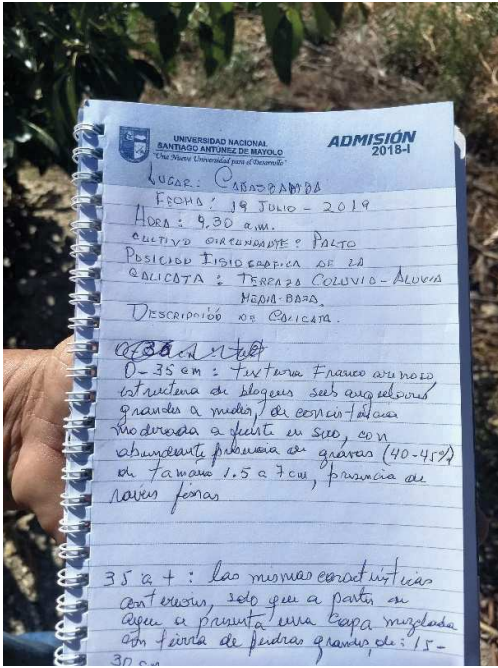 UNIVERSIDAD NACIONAL
SANTIAGO ANTÚNEZ DE MAYOLO
"Una Nueva Universidad para el Desarrollo"
ADMISIÓN
2018-I
LUGAR: CARASBAMBA
FECHA: 19 JULIO - 2019
HORA: 9.30 a.m.
CULTIVO CIRCUNDANTE: PALTO
POSICION FISIOGRAFICA DE LA
CALICATA: TERRAZA COLUVIO-ALUVIA
MEDIA-BAJA.
DESCRIPCIÓN DE CALICATA.
0-35 cm: textura Franco arenoso
estructura de bloques sub angulares
grandes a medios, de consistencia
moderada a fuerte en seco, con
abundante presencia de gravas (40-45%)
de tamaño 1.5 a 7cm, presencia de
raices finas
35 a +: las mismas características
anteriores, solo que a partir de
aqui a presenta una capa mezclada
con tierra de piedras grandes de: 15-
30 cm